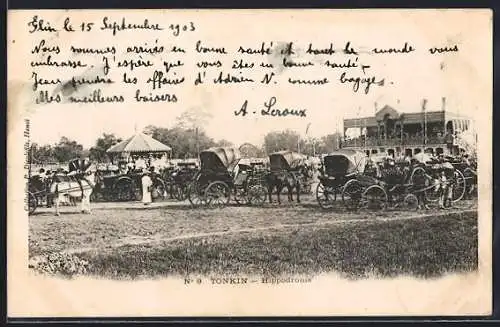 le 15 Septembre 1903
Nous sommes arrivés en bonne santé et tout le monde vous
embrasse. J'espère que vous êtes en bonne santé.
Jean prendra les affaires d'Adrien N. comme bagage.
Mes meilleurs baisers
A. Leroux
Collection R. Moreau, Hanoï
N° 9. TONKIN — Hippodrome